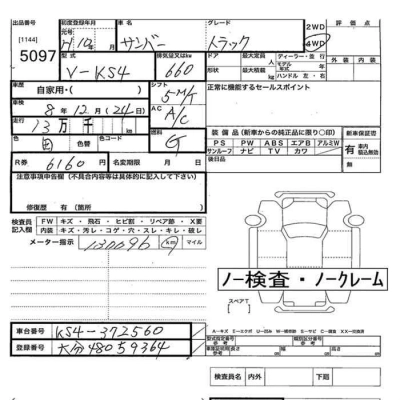 出品番号 初度登録年月 車名 グレード 評価点
[1144] H10年 月 サンバー トラック 2WD 4WD
5097 型式 排気又はkw ドア 最大定員 ディーラー・並行 外装 内装
V-KS4 660 形状 最大積 モデル年式
シフト ハンドル 左・右
自家用・ 5MT 正常に機能するセールスポイント
車検 8年12月(24日) AC A/C
走行 13万千 燃料 G
装備品(新車からの純正品に限り〇印) 新車保証
色 白 色替 色コード PS PW ABS エアB アルミW 有
サンルーフ ナビ TV カワ
R券 6160円 名変期限 月 日 後日品
注意事項申告欄(不具合内容等は具体的に記入して下さい)
修復歴 有(箇所) 無
検査員記入欄 FW キズ・飛石・ヒビ割・リペア跡・X要
内装 キズ・汚レ・コゲ・穴・スレ・キレ・破レ
メーター指示 130096 km マイル
ノー検査・ノークレーム
スペアT
車台番号 KS4-372560
登録番号 大分480え9364
型式指定番号 類別区分番号
車両寸法 長さ 幅 高さ
検査員名 内外 下廻